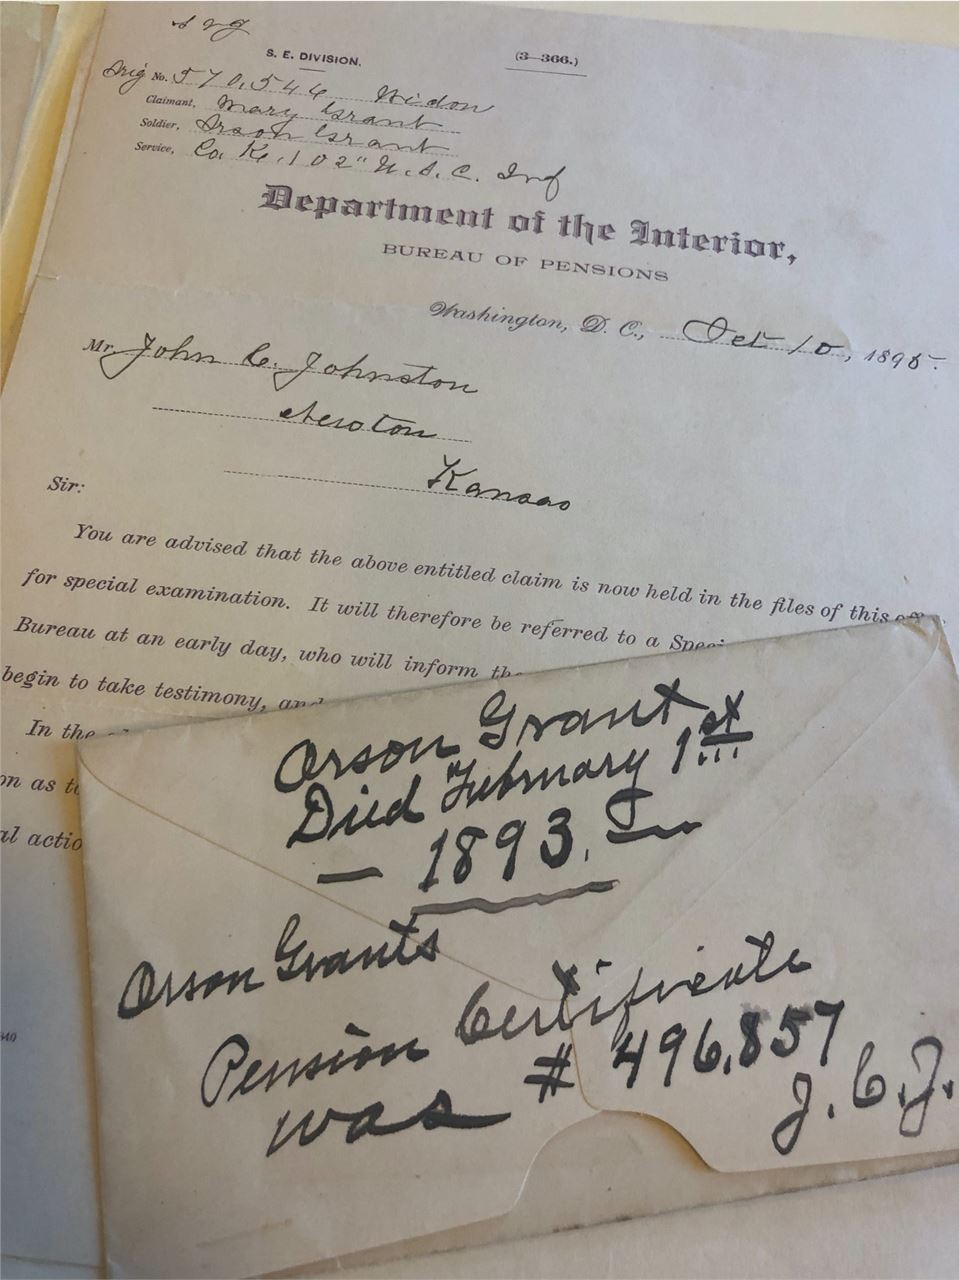 S. E. DIVISION.
(3-366.)
Orig No. 570,546 Widow
Claimant, Mary Grant
Soldier, Orson Grant
Service, Co. K, 102" U.S.C. Inf
Department of the Interior,
BUREAU OF PENSIONS
Washington, D. C., Oct 10, 1895.
Mr. John C. Johnston
Newton
Kansas
Sir:
You are advised that the above entitled claim is now held in the files of this
for special examination. It will therefore be referred to a
Bureau at an early day, who will inform
begin to take testimony, and
In the
on as
al actio
Orson Grant
Died February 1st
— 1893. —
Orson Grants
Pension Certificate
was # 496,857
J. C. J.